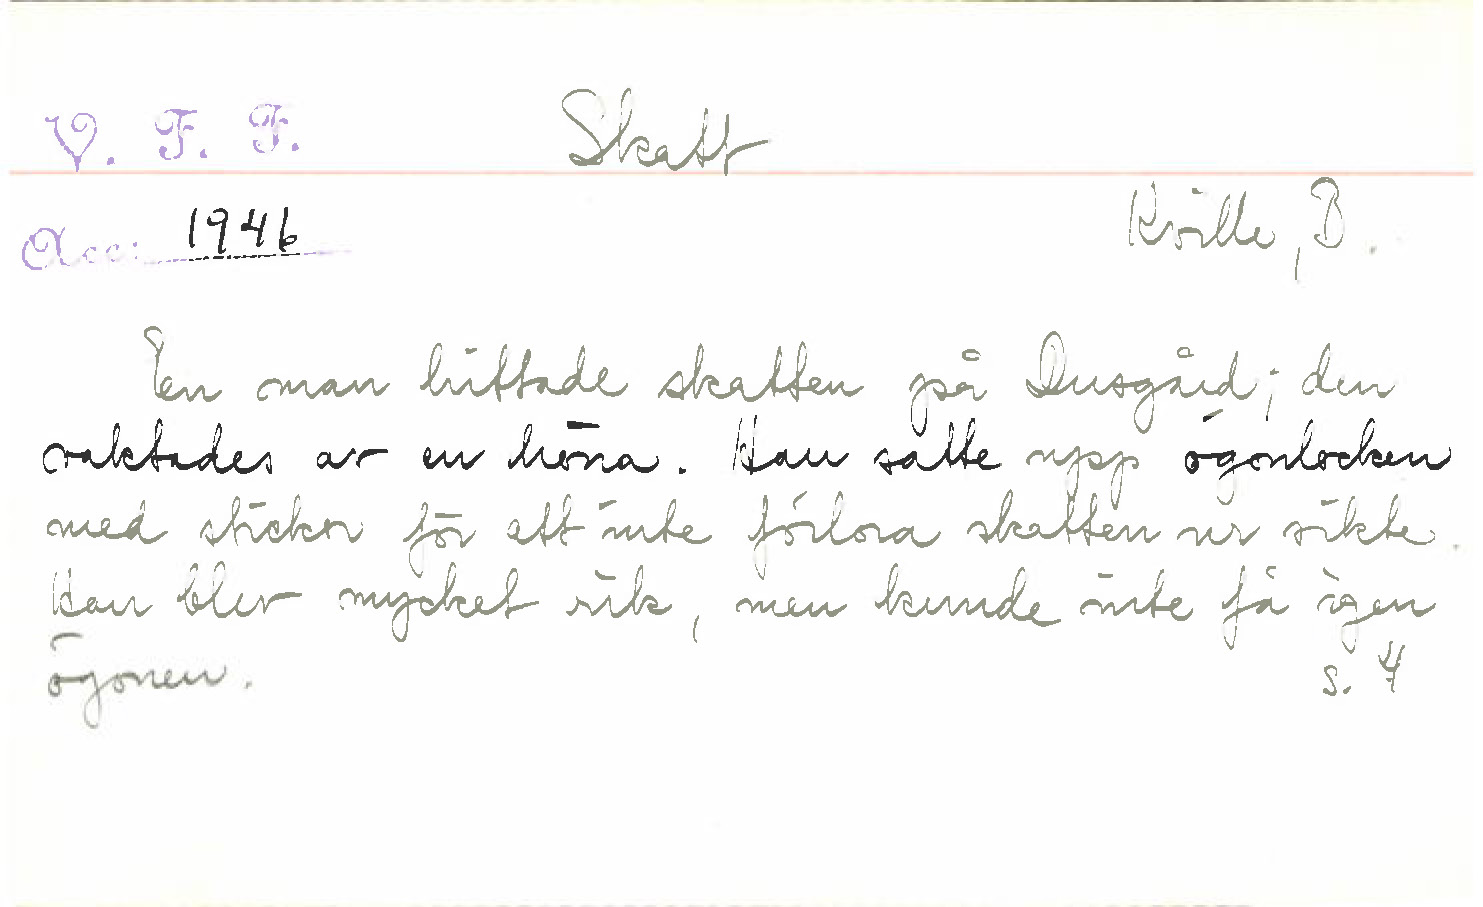 V. F. F. Skatt
Acc: 1946 Kville, B.
En man hittade skatten på Dusgård; den
vaktades av en höna. Han satte upp ögonlocken
med stickor för att inte förlora skatten ur sikte.
Han blev mycket rik, men kunde inte få igen
ögonen.
s. 4